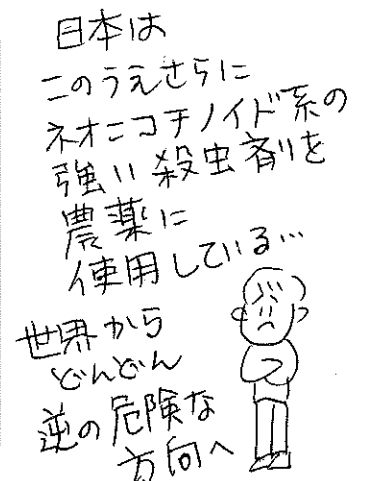 日本は
このうえさらに
ネオニコチノイド系の
強い殺虫剤を
農薬に
使用している…
世界から
どんどん
逆の危険な
方向へ